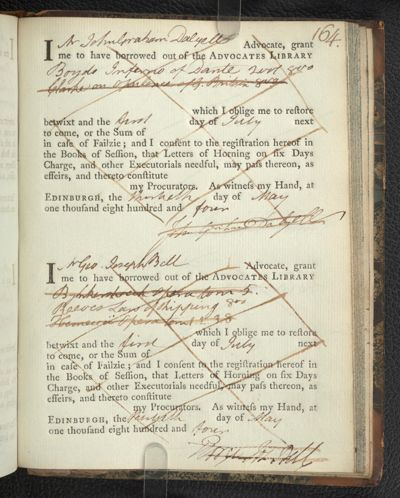 164.
I Mr John Graham Dalyell Advocate, grant
me to have borrowed out of the ADVOCATES LIBRARY
Boyds Inferno of Dante 2 vol 8vo
which I oblige me to reſtore
betwixt and the first day of July next
to come, or the Sum of
in caſe of Failzie; and I conſent to the regiſtration hereof in
the Books of Seſſion, that Letters of Horning on ſix Days
Charge, and other Executorials needful, may paſs thereon, as
effeirs, and thereto conſtitute
my Procurators. As witneſs my Hand, at
EDINBURGH, the day of May
one thouſand eight hundred and four
John Graham Dalyell
I Mr Geo. Joseph Bell Advocate, grant
me to have borrowed out of the ADVOCATES LIBRARY
Reeves Law of Shipping 8vo
which I oblige me to reſtore
betwixt and the first day of July next
to come, or the Sum of
in caſe of Failzie; and I conſent to the regiſtration hereof in
the Books of Seſſion, that Letters of Horning on ſix Days
Charge, and other Executorials needful, may paſs thereon, as
effeirs, and thereto conſtitute
my Procurators. As witneſs my Hand, at
EDINBURGH, the day of May
one thouſand eight hundred and four
Bell